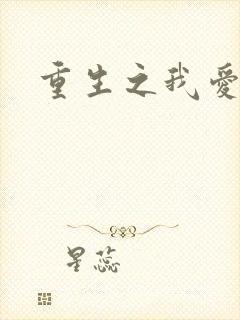 重生之我愛
星蕊